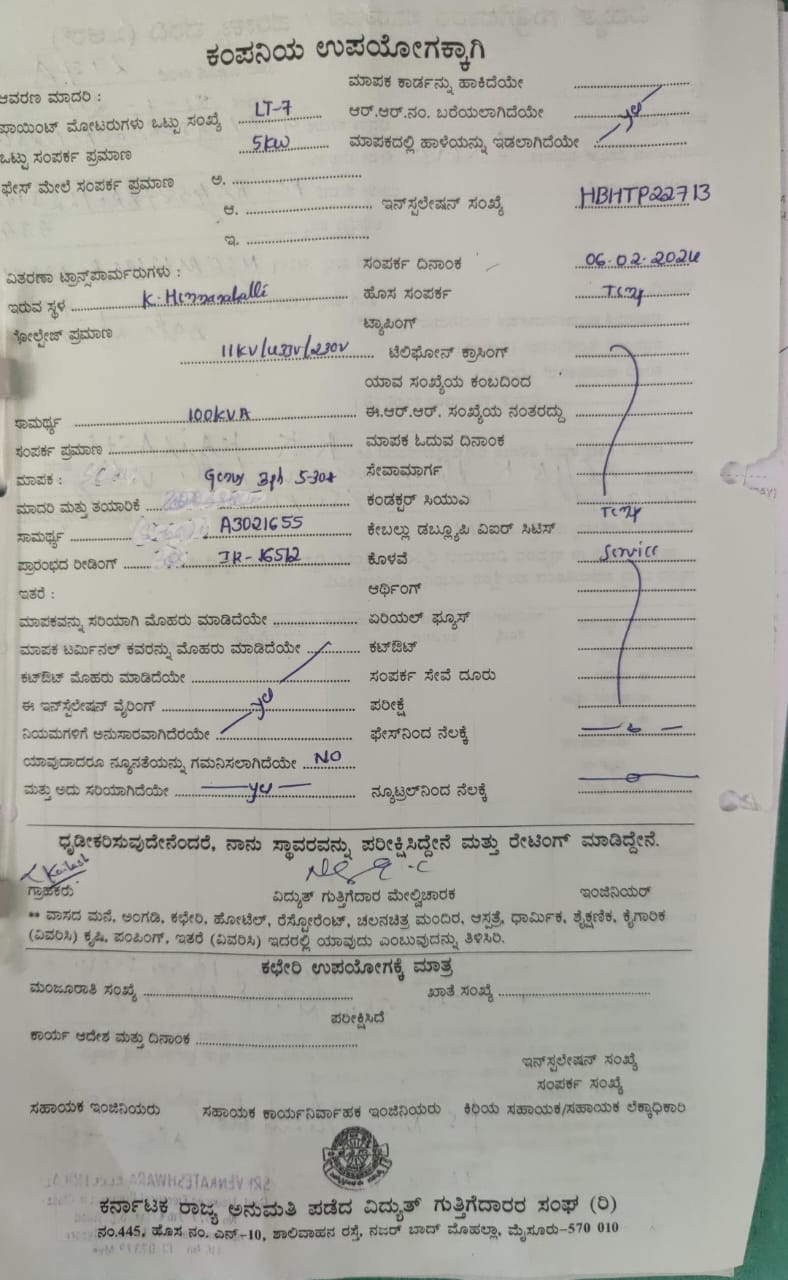 ಕಂಪನಿಯ ಉಪಯೋಗಕ್ಕಾಗಿ
ಆವರಣ ಮಾದರಿ :
ಮಾಪಕ ಕಾರ್ಡನ್ನು ಹಾಕಿದೆಯೇ
ಪಾಯಿಂಟ್ ಮೋಟರುಗಳು ಒಟ್ಟು ಸಂಖ್ಯೆ LT-7 ಆರ್.ಆರ್.ನಂ. ಬರೆಯಲಾಗಿದೆಯೇ yes
ಒಟ್ಟು ಸಂಪರ್ಕ ಪ್ರಮಾಣ 5kw ಮಾಪಕದಲ್ಲಿ ಹಾಳೆಯನ್ನು ಇಡಲಾಗಿದೆಯೇ
ಫೇಸ್ ಮೇಲೆ ಸಂಪರ್ಕ ಪ್ರಮಾಣ ಅ.
ಆ. ಇನ್‌ಸ್ಟಲೇಷನ್ ಸಂಖ್ಯೆ HBHTP22713
ಇ.
ವಿತರಣಾ ಟ್ರಾನ್ಸ್‌ಪಾರ್ಮರುಗಳು : ಸಂಪರ್ಕ ದಿನಾಂಕ 06-02-2024
ಇರುವ ಸ್ಥಳ ಹೊಸ ಸಂಪರ್ಕ Temp
ವೋಲ್ಟೇಜ್ ಪ್ರಮಾಣ ಟ್ಯಾಪಿಂಗ್
11KV/433V/230V ಟೆಲಿಫೋನ್ ಕ್ರಾಸಿಂಗ್
ಯಾವ ಸಂಖ್ಯೆಯ ಕಂಬದಿಂದ
ಸಾಮರ್ಥ್ಯ 100KVA ಈ.ಆರ್.ಆರ್. ಸಂಖ್ಯೆಯ ನಂತರದ್ದು
ಸಂಪರ್ಕ ಪ್ರಮಾಣ ಮಾಪಕ ಓದುವ ದಿನಾಂಕ
ಮಾಪಕ : Genus 3ph 5-30A ಸೇವಾಮಾರ್ಗ
ಮಾದರಿ ಮತ್ತು ತಯಾರಿಕೆ ಕಂಡಕ್ಟರ್ ಸಿಯುಎ
ಸಾಮರ್ಥ್ಯ A3021655 ಕೇಬಲ್ಲು ಡಬ್ಲ್ಯೂಪಿ ವಿಐರ್ ಸಿಟಿಸ್ Temp
ಪ್ರಾರಂಭದ ರೀಡಿಂಗ್ IR-16512 ಕೊಳವೆ Service
ಇತರೆ : ಆರ್ಥಿಂಗ್
ಮಾಪಕವನ್ನು ಸರಿಯಾಗಿ ಮೊಹರು ಮಾಡಿದೆಯೇ ಏರಿಯಲ್ ಫ್ಯೂಸ್
ಮಾಪಕ ಟರ್ಮಿನಲ್ ಕವರನ್ನು ಮೊಹರು ಮಾಡಿದೆಯೇ ಕಟ್‌ಔಟ್
ಕಟ್‌ಔಟ್ ಮೊಹರು ಮಾಡಿದೆಯೇ ಸಂಪರ್ಕ ಸೇವೆ ದೂರು
ಈ ಇನ್‌ಸ್ಟಲೇಷನ್ ವೈರಿಂಗ್ yes ಪರೀಕ್ಷೆ
ನಿಯಮಗಳಿಗೆ ಅನುಸಾರವಾಗಿದೆರಯೇ ಫೇಸ್‌ನಿಂದ ನೆಲಕ್ಕೆ
ಯಾವುದಾದರೂ ನ್ಯೂನತೆಯನ್ನು ಗಮನಿಸಲಾಗಿದೆಯೇ NO
ಮತ್ತು ಅದು ಸರಿಯಾಗಿದೆಯೇ yes ನ್ಯೂಟ್ರಲ್‌ನಿಂದ ನೆಲಕ್ಕೆ
ಧೃಡೀಕರಿಸುವುದೇನೆಂದರೆ, ನಾನು ಸ್ಥಾವರವನ್ನು ಪರೀಕ್ಷಿಸಿದ್ದೇನೆ ಮತ್ತು ರೇಟಿಂಗ್ ಮಾಡಿದ್ದೇನೆ.
Kailash
ಗ್ರಾಹಕರು ವಿದ್ಯುತ್ ಗುತ್ತಿಗೆದಾರ ಮೇಲ್ವಿಚಾರಕ ಇಂಜಿನಿಯರ್
** ವಾಸದ ಮನೆ, ಅಂಗಡಿ, ಕಛೇರಿ, ಹೋಟೆಲ್, ರೆಸ್ಟೋರೆಂಟ್, ಚಲನಚಿತ್ರ ಮಂದಿರ, ಆಸ್ಪತ್ರೆ, ಧಾರ್ಮಿಕ, ಶೈಕ್ಷಣಿಕ, ಕೈಗಾರಿಕ
(ವಿವರಿಸಿ) ಕೃಷಿ, ಪಂಪಿಂಗ್, ಇತರೆ (ವಿವರಿಸಿ) ಇದರಲ್ಲಿ ಯಾವುದು ಎಂಬುವುದನ್ನು ತಿಳಿಸಿರಿ.
ಕಛೇರಿ ಉಪಯೋಗಕ್ಕೆ ಮಾತ್ರ
ಮಂಜೂರಾತಿ ಸಂಖ್ಯೆ ಖಾತೆ ಸಂಖ್ಯೆ
ಪರೀಕ್ಷಿಸಿದೆ
ಕಾರ್ಯ ಆದೇಶ ಮತ್ತು ದಿನಾಂಕ
ಇನ್‌ಸ್ಟಲೇಷನ್ ಸಂಖ್ಯೆ
ಸಂಪರ್ಕ ಸಂಖ್ಯೆ
ಸಹಾಯಕ ಇಂಜಿನಿಯರು ಸಹಾಯಕ ಕಾರ್ಯನಿರ್ವಾಹಕ ಇಂಜಿನಿಯರು ಕಿರಿಯ ಸಹಾಯಕ/ಸಹಾಯಕ ಲೆಕ್ಕಾಧಿಕಾರಿ
ಕರ್ನಾಟಕ ರಾಜ್ಯ ಅನುಮತಿ ಪಡೆದ ವಿದ್ಯುತ್ ಗುತ್ತಿಗೆದಾರರ ಸಂಘ (ರಿ)
ನಂ.445, ಹೊಸ ನಂ. ಎನ್-10, ಶಾಲಿವಾಹನ ರಸ್ತೆ, ನಜರ್ ಬಾದ್ ಮೊಹಲ್ಲಾ, ಮೈಸೂರು-570 010